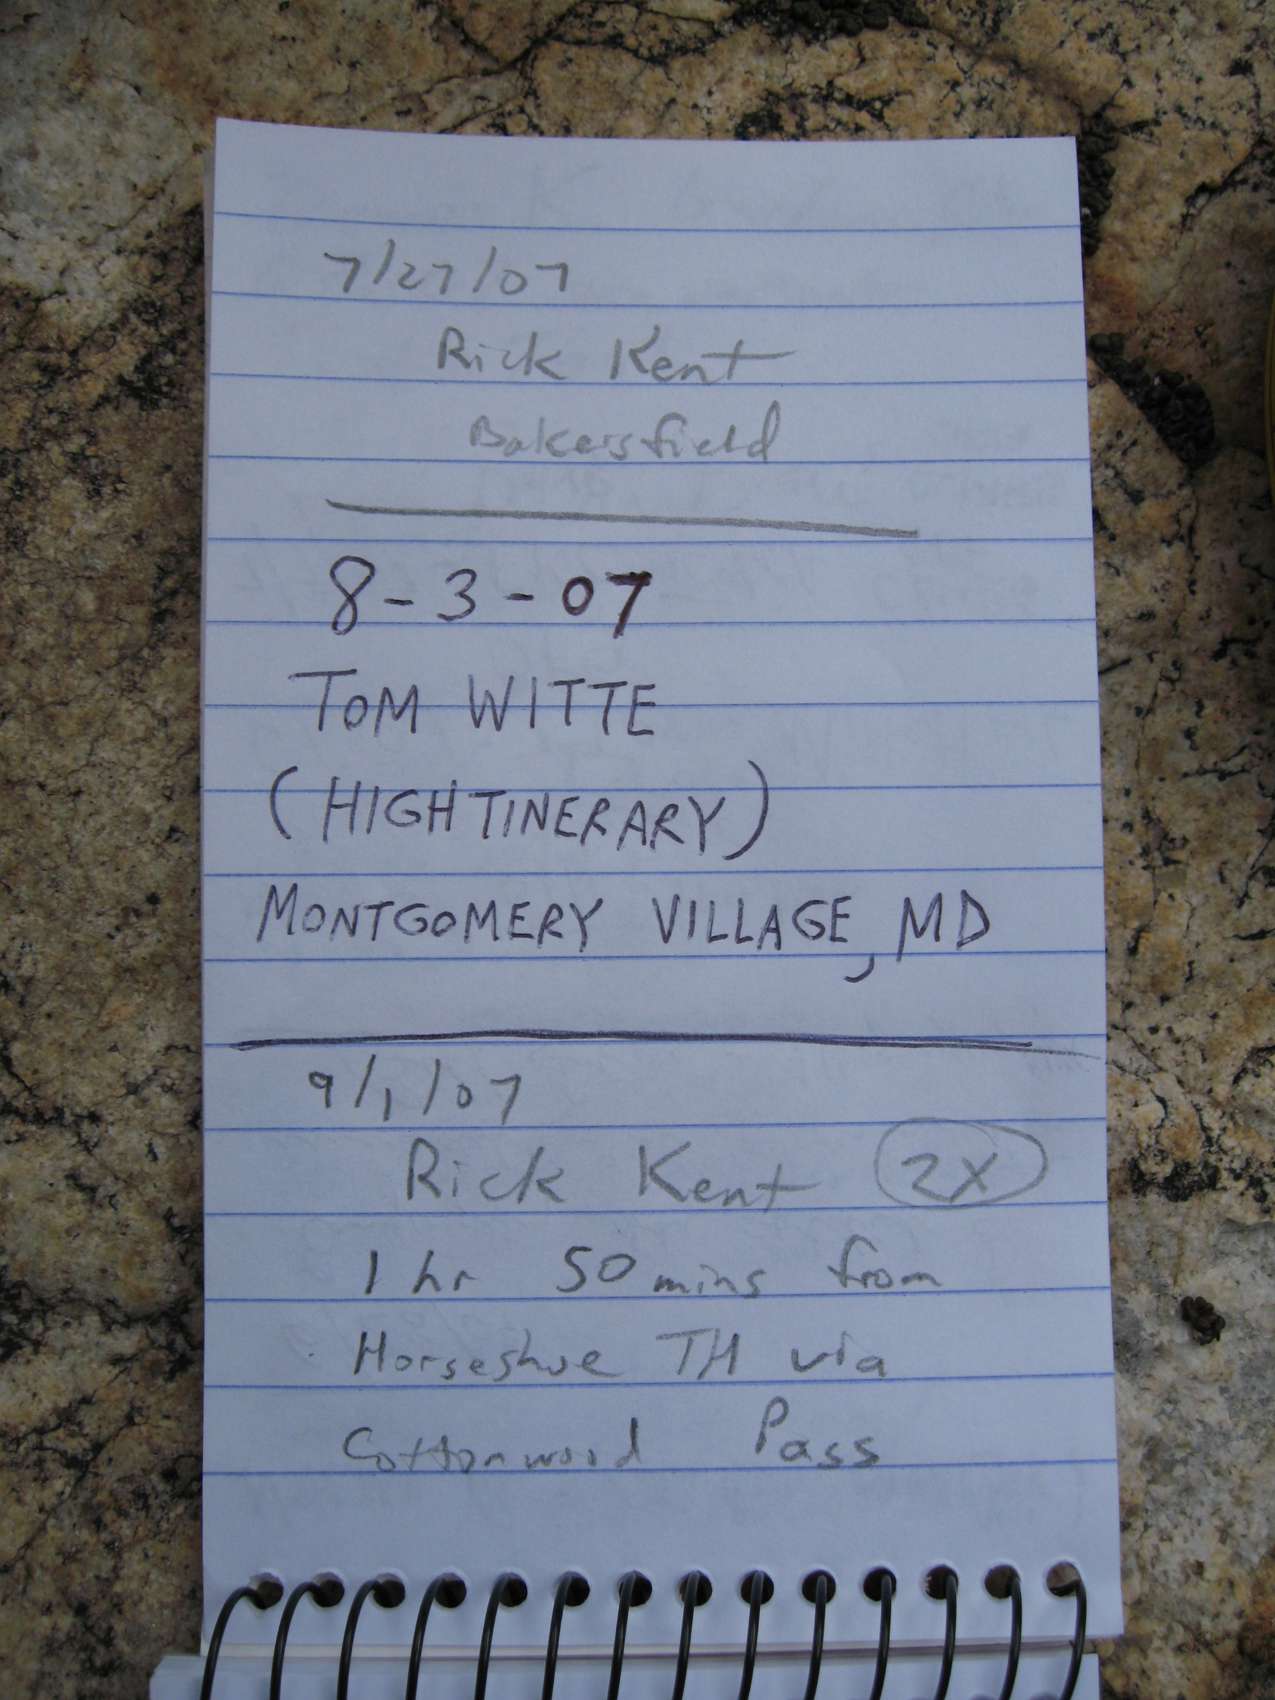 7/27/07
Rick Kent
Bakersfield
8-3-07
TOM WITTE
(HIGHTINERARY)
MONTGOMERY VILLAGE, MD
9/1/07
Rick Kent 2X
1 hr 50 mins from
Horseshoe TH via
Cottonwood Pass